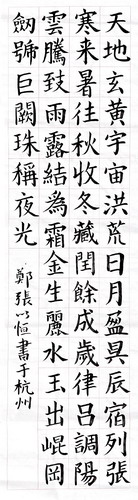 天地玄黃宇宙洪荒日月盈昃辰宿列張
寒来暑往秋收冬藏閏餘成歲律吕調陽
雲騰致雨露結為霜金生麗水玉出崐岡
劒號巨闕珠稱夜光
鄭張以恒書于杭州